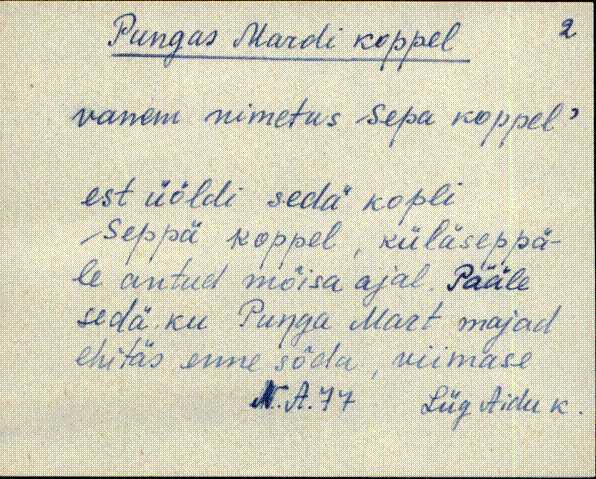 Pungas Mardi koppel 2
vanem nimetus Sepa koppel
est üöldi sedä kopli
Seppä koppel, küläseppä-
le antud mõisa ajal. Pääle
sedä ku Punga Mart majad
ehitäs enne sõda, viimase
N.A.77 Lüg Aidu k.